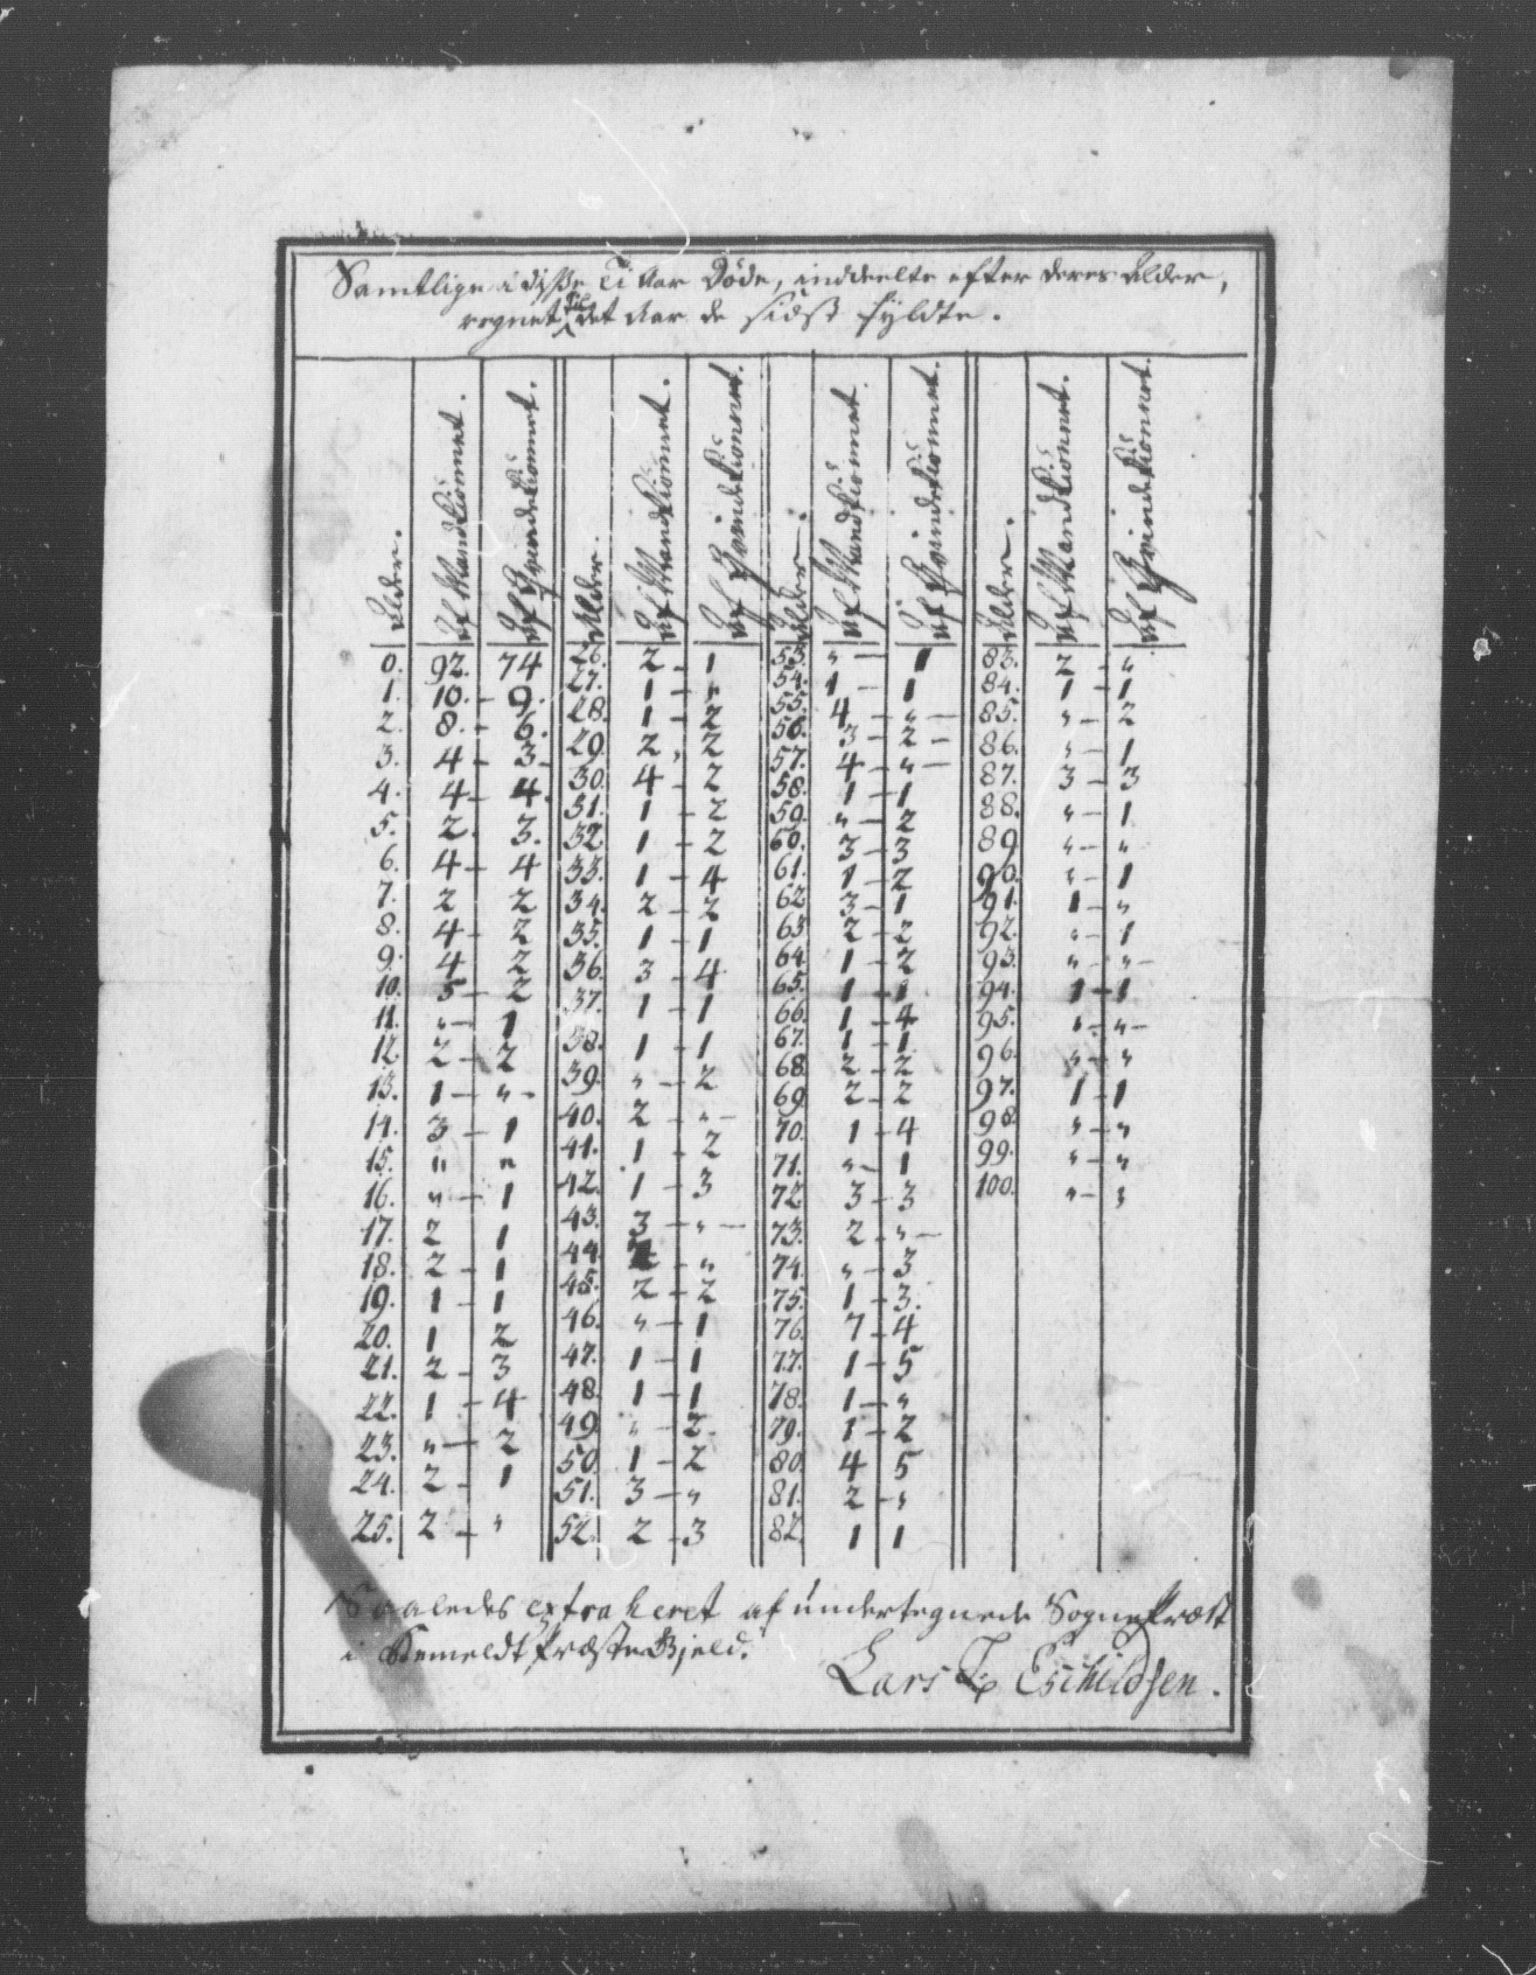 Samtlige i disse Ti Aar Døde, inddeelte efter deres Alder,
regnet til det Aar de sidst fyldte.
Alder. Af Mandkiönnet. Af Qvindekiönnet. Alder. Af Mandkiönnet. Af Qvindekiönnet. Alder. Af Mandkiönnet. Af Qvindekiönnet. Alder. Af Mandkiönnet. Af Qvindekiönnet.
0. 92. 74 26. 2 - 1 53. " - 1 83. 2 - "
1. 10. - 9. 27. 1 - " 54. 1 - 1 84. 1 - 1
2. 8. - 6. 28. 1 - 2 55. 4 - " - 85. " - 2
3. 4 - 3 - 29. 2 - 2 56. 3 - 2 - 86. " - 1
4. 4 - 4. 30. 4 - 2 57. 4 - " - 87. 3 - 3
5. 2. 3. 31. 1 - 2 58. 1 - 1 88. " - 1
6. 4 - 4 32. 1 - 2 59. " - 2 89. " - "
7. 2 2 33. 1 - 4 60. 3 - 3 90. " - 1
8. 4 - 2 34. 2 - 2 61. 1 - 2 91. 1 - "
9. 4 2 35. 1 - 1 62. 3 - 1 92. " - 1
10. 5 - 2 36. 3 - 4 63. 2 - 2 93. " - " -
11. " - 1 37. 1 - 1 64. 1 - 2 94. 1 - 1
12. 2 - 2 38. 1 - 1 65. 1 - 1 95. " - " -
13. 1 - " - 39. " - 2 66. 1 - 4 96. " - "
14. 3 - 1 40. 2 - " - 67. 1 - 1 97. 1 - 1
15. " " 41. 1 - 2 68. 2 - 2 98. " - "
16. " - 1 42. 1 - 3 69. 2 - 2 99. " - "
17. 2 1 43. 3 - " - 70. 1 - 4 100. " - "
18. 2 - 1 44. 2 - " 71. " - 1
19. 1 - 1 45. 2 - 2 72. 3 - 3
20. 1 2 46. " - 1 73. 2 - " -
21. 2 - 3 47. 1 - 1 74. " - 3
22. 1 - 4 48. 1 - 1 75. 1 - 3.
23. " - 2 49. " - 2. 76. 7 - 4
24. 2 - 1 50. 1 - 2 77. 1 - 5
25. 2 - " 51. 3 - " 78. 1 - "
52. 2 - 3 79. 1 - 2
80. 4 5
81. 2 - "
82. 1 1
Saaledes extraheret af undertegnede Sogne Præst
i Remeldt Præste Gjeld.
Lars Eschildsen.